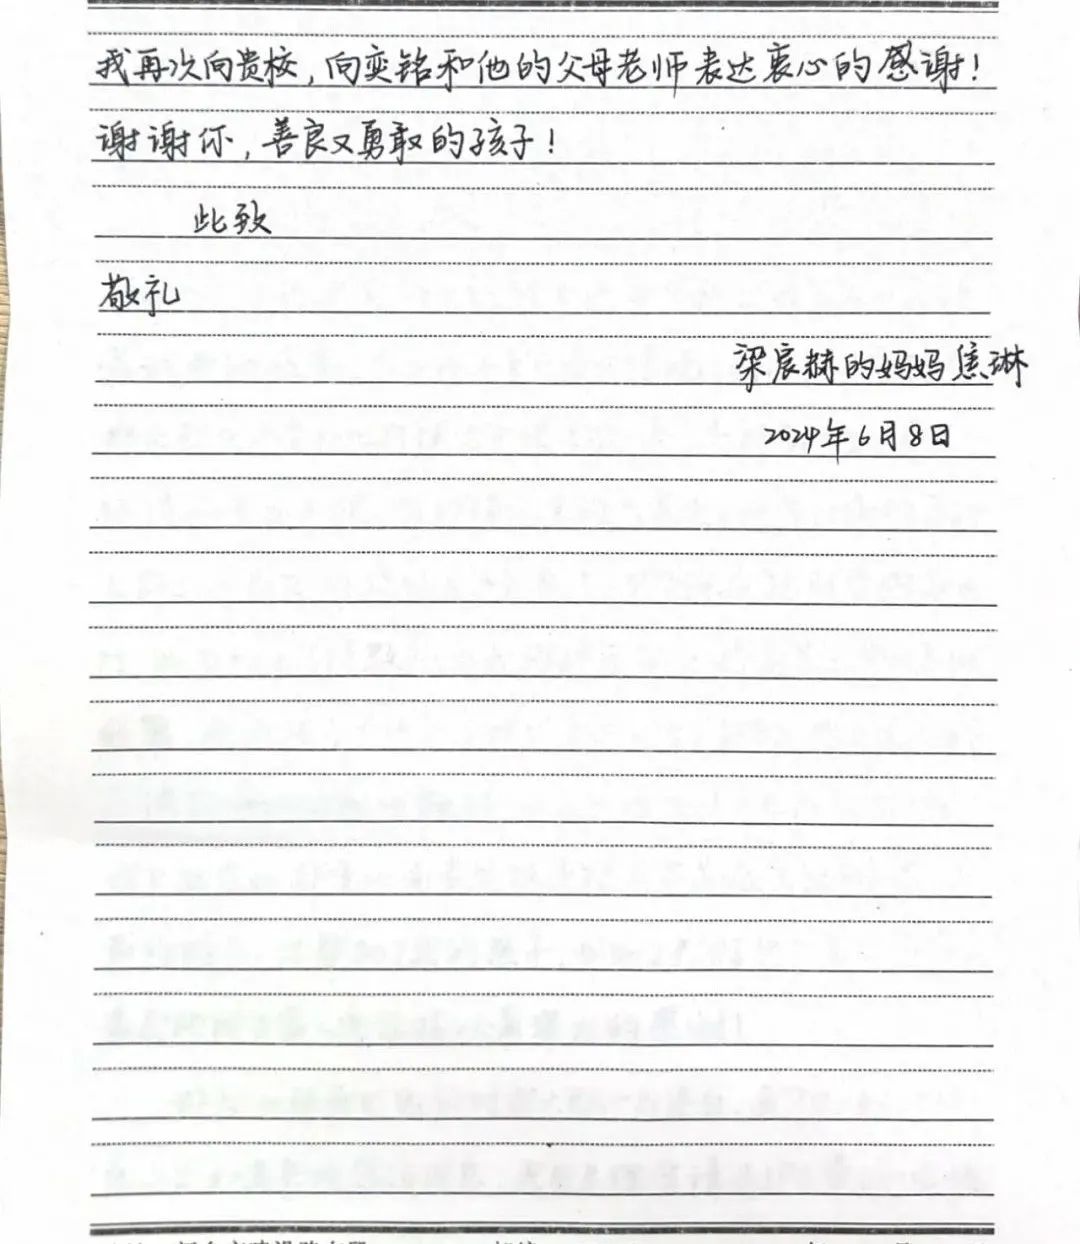 我再次向贵校，向奕铭和他的父母老师表达衷心的感谢！
谢谢你，善良又勇敢的孩子！
此致
敬礼
梁宸赫的妈妈焦琳
2024年6月8日